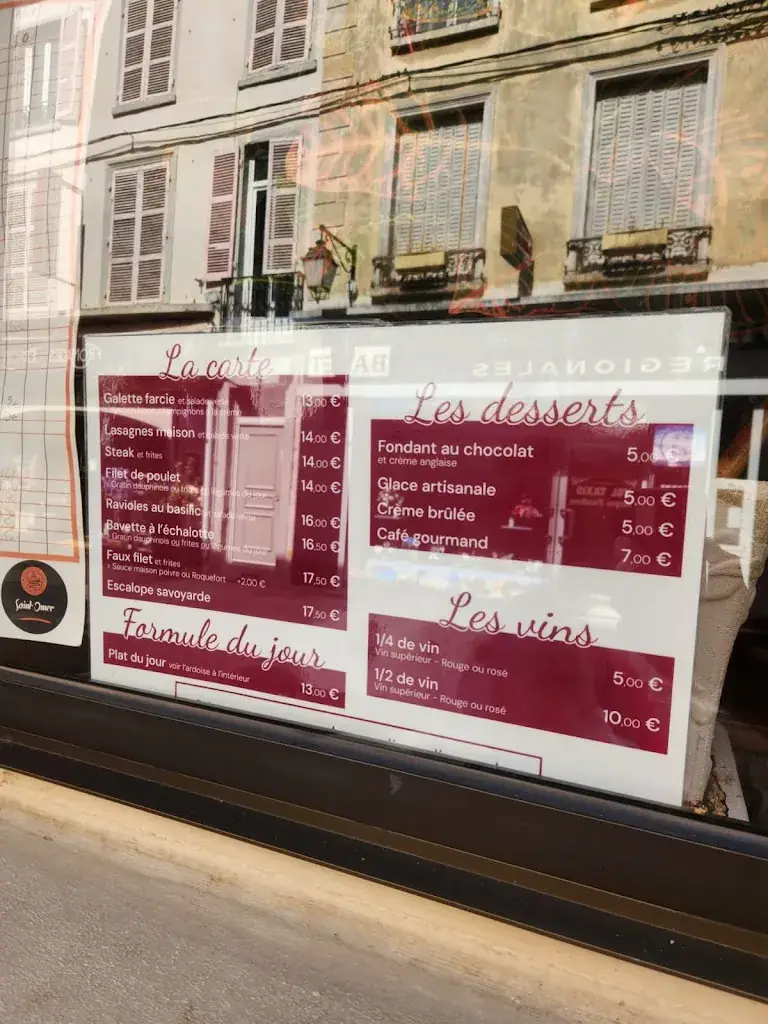 La carte
Galette farcie et salade verte 13,00 €
champignons à la crème
Lasagnes maison et salade verte 14,00 €
Steak et frites 14,00 €
Filet de poulet 14,00 €
> Gratin dauphinois ou frites ou légumes du jour
Ravioles au basilic et salade verte 16,00 €
Bavette à l'échalotte 16,50 €
> Gratin dauphinois ou frites ou légumes du jour
Faux filet et frites 17,50 €
> Sauce maison poivre ou Roquefort +2,00 €
Escalope savoyarde 17,50 €
Formule du jour
Plat du jour voir l'ardoise à l'intérieur 13,00 €
Les desserts
Fondant au chocolat 5,00 €
et crème anglaise
Glace artisanale 5,00 €
Crème brûlée 5,00 €
Café gourmand 7,00 €
Les vins
1/4 de vin 5,00 €
Vin supérieur - Rouge ou rosé
1/2 de vin 10,00 €
Vin supérieur - Rouge ou rosé
Saint-Omer
REGIONALES